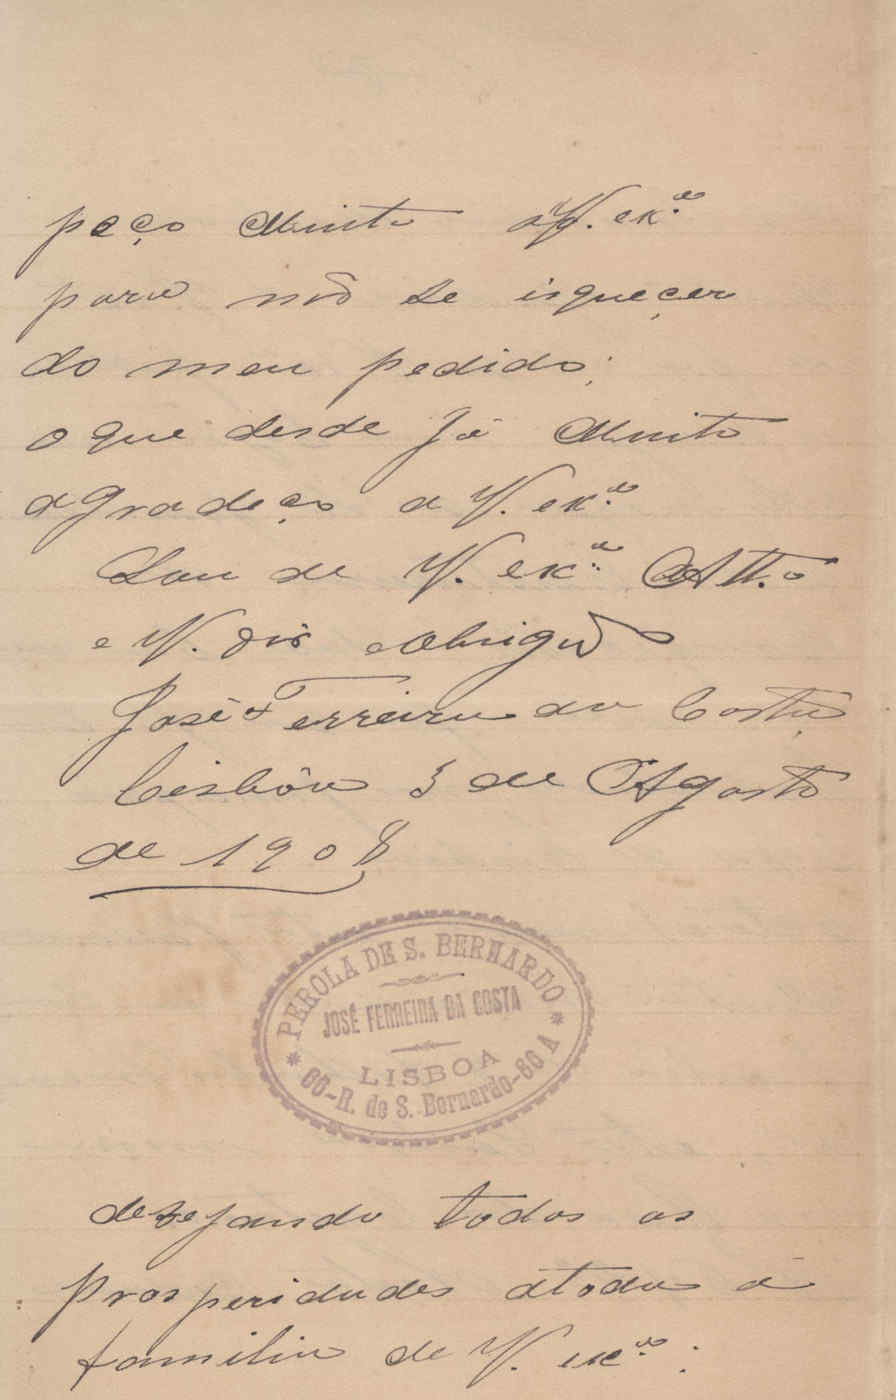 peço Muito a V. exª
para não se isqueçer
do meu pedido;
o que desde Já Muito
agradeço a V. exª
Sou de V. exª Att.º
e V. dor e obrigdo
José Ferreira da Costa
Lisbôa 3 de Agosto
de 1908
PEROLA DE S. BERNARDO
JOSÉ FERREIRA DA COSTA
LISBOA
66-R. de S. Bernardo-66 A
desejando todas as
Prosperidades átoda á
familia de V. exª.